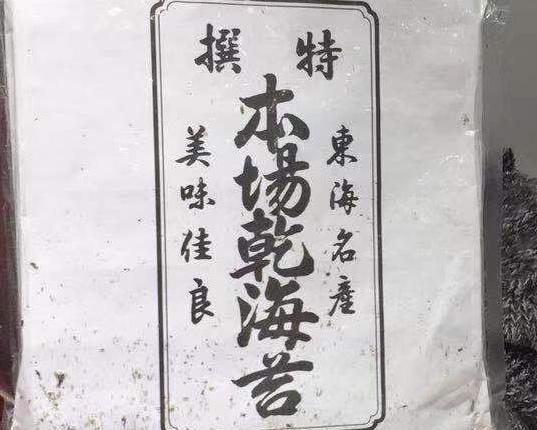 特撰
東海名産
本場乾海苔
美味佳良